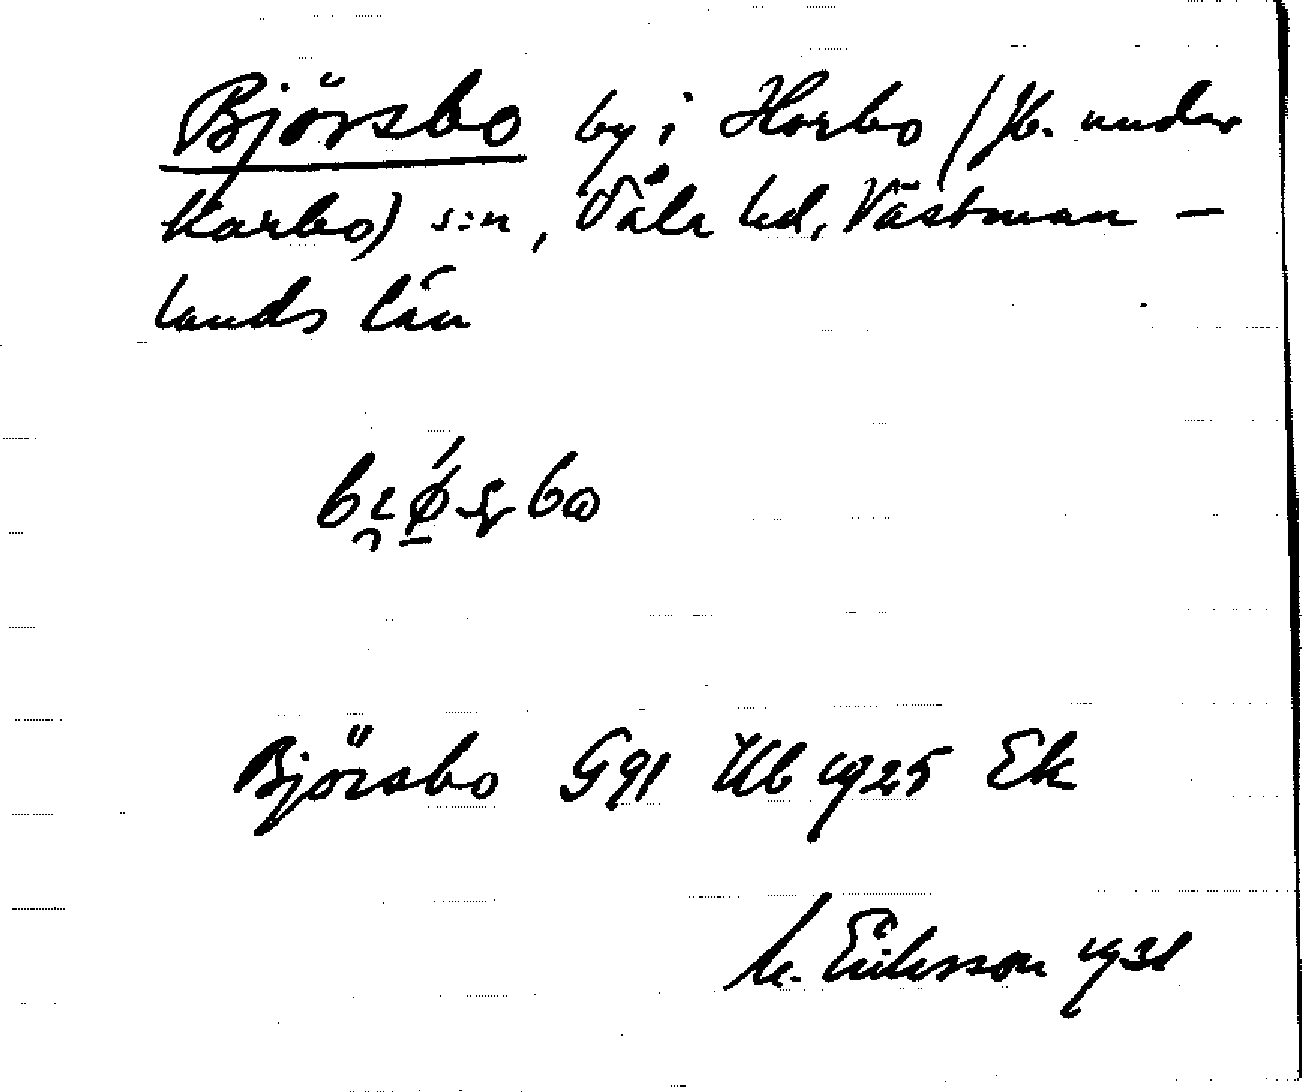 Björsbo by i Horbo (Jb. under
Karbo) s:n, Våla hd, Västman-
lands län
Björsbo G91 Ub 1925 Ek
M. Eriksson 1931